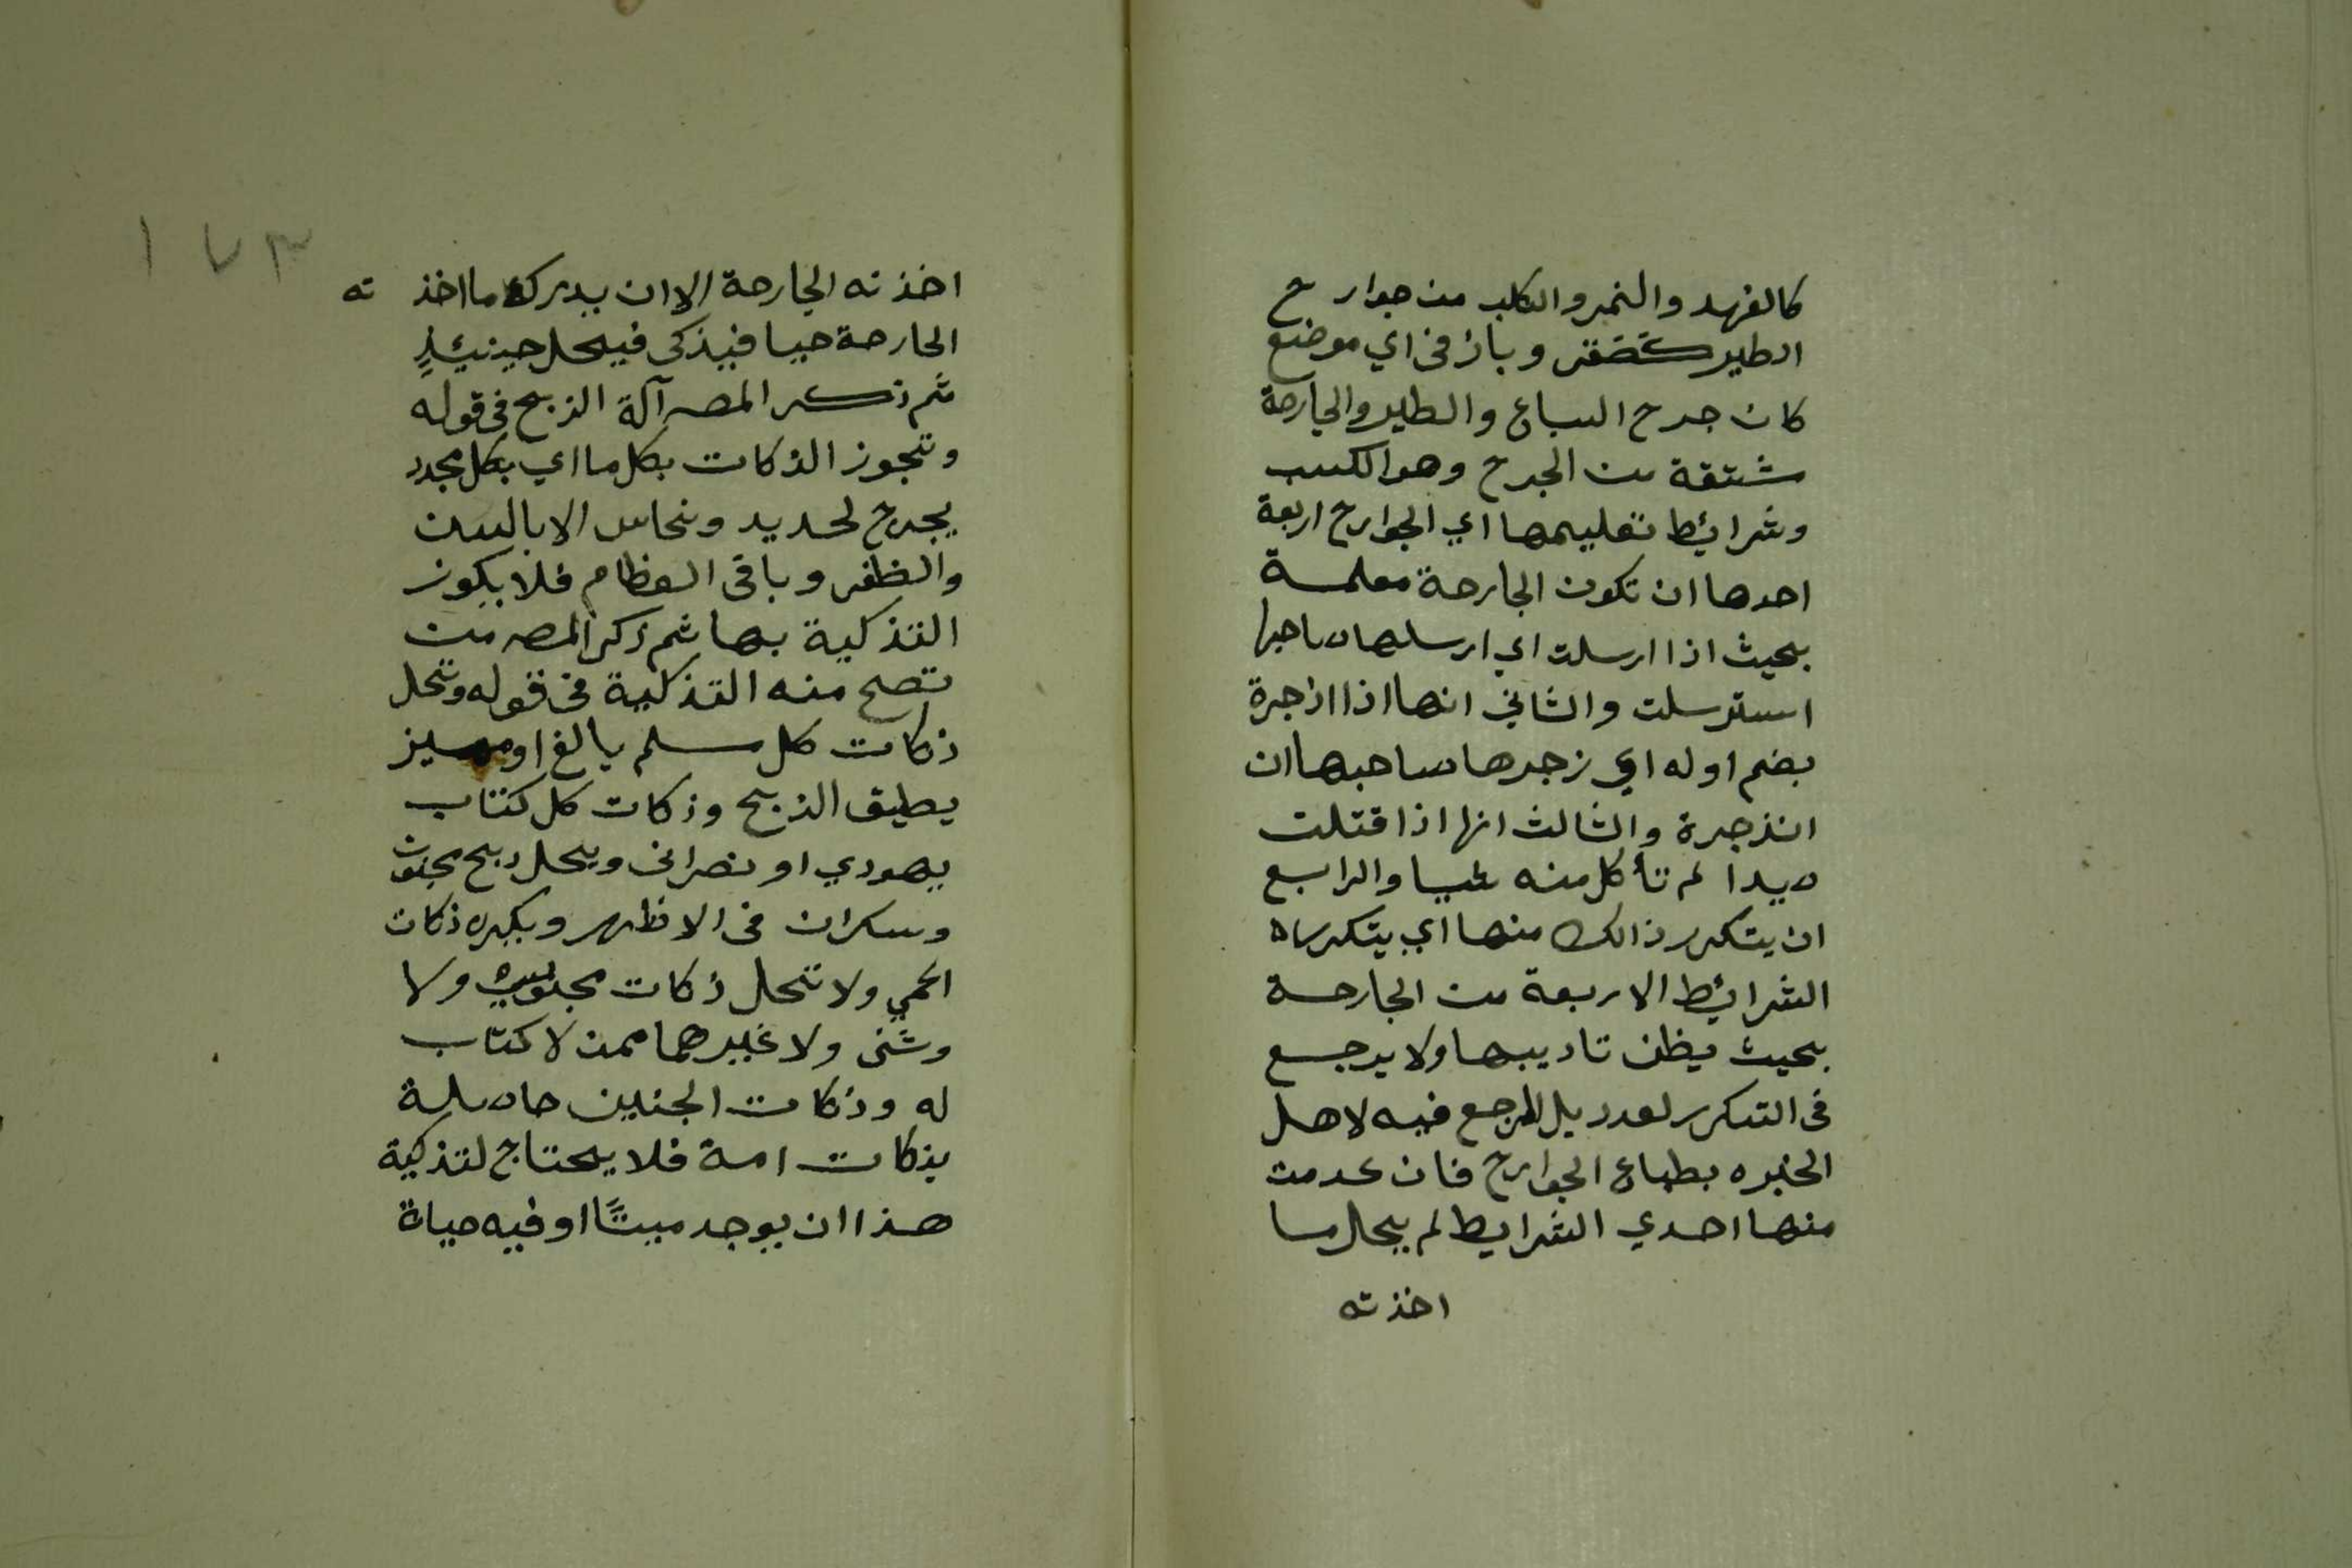 كالفهد والنمر والكلب من جوارح
الطير كصقر وباز في اي موضع
كان جرح السباع والطير والجارحة
شتقة من الجرح وهو الكسب
وشرائط تعليمها اي الجوارح اربعة
احدها ان تكون الجارحة معلمة
بحيث اذا ارسلت اي ارسلها صاحبها
استرسلت والثاني انها اذا ازجرة
بضم اوله اي زجرها صاحبها ان
انزجرة والثالث انها اذا قتلت
صيدا لم تأكل منه شيا والرابع
ان يتكرر ذالك منها اي يتكرر
الشرائط الاربعة من الجارحة
بحيث يظن تاديبها ولا يرجع
في التكرر لعدد بل المرجع فيه لاهل
الخبره بطباع الجوارح فان عدمت
منها احدي الشرايط لم يحل ما
اخذته
١٧٣
اخذته الجارحة الا ان يدرك ما اخذته
الجارحة حيا فيذكى فيحل حينيئذٍ
ثم ذكر المصـ آلة الذبح في قوله
وتجوز الذكات بكل ما اي بكل محدد
يجرح لحديد ونحاس الا بالسن
والظفر وباقي العظام فلا يكوز
التذكية بها ثم ذكر المصـ من
تصح منه التذكية في قوله وتحل
ذكات كل مسلم بالغ او مميز
يطيق الذبح وذكات كل كتاب
يهودي او نصراني ويحل ذبح مجنون
وسكران في الاظهر ويكره ذكات
اعمي ولا تحل ذكات مجوسي ولا
وشني ولا غيرهما ممن لا كتاب
له وذكات الجنين حاصلة
بذكات امة فلا يحتاج لتذكية
هذا ان يوجد ميتًا او فيه حياة